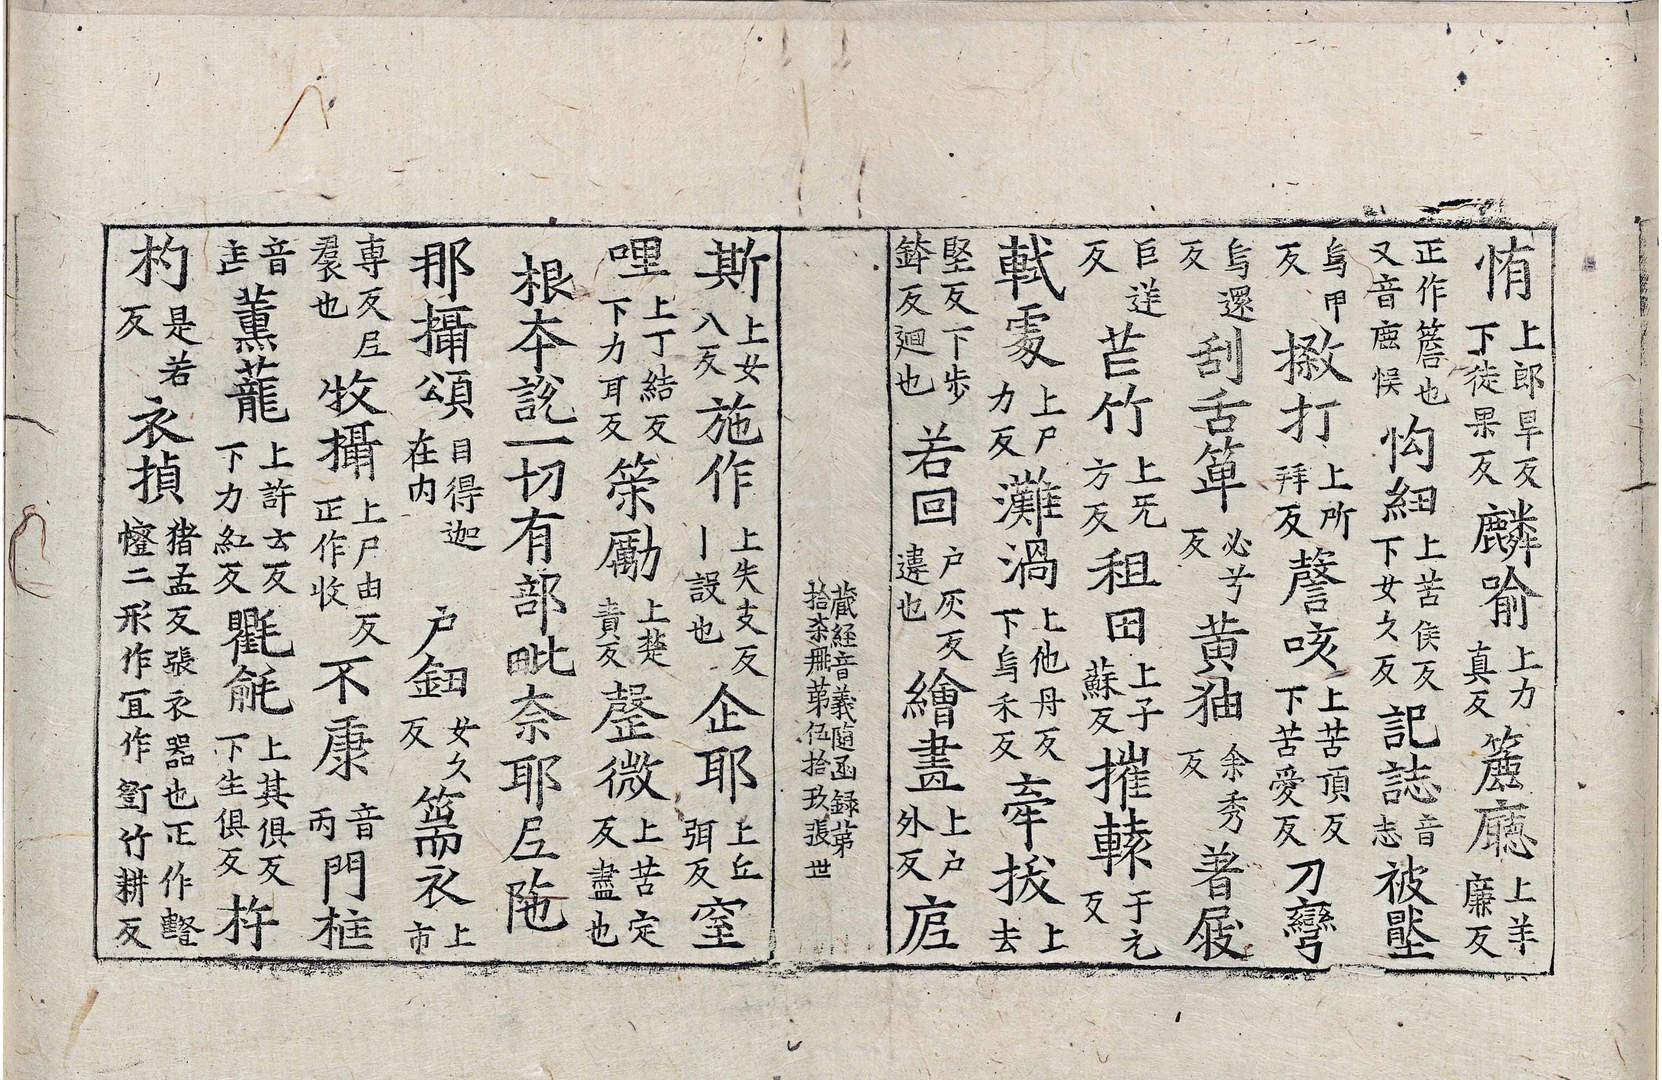 㤢上郎旱反下徒果反麟喻上力真反簏廳上羊廉反
正作簷也又音鹿悮怐紐上苦侯反下女久反記誌音志被壓
烏甲反撽打上所拜反謦咳上苦頂反下苦愛反刀彎
烏還反刮舌箄必兮反黃㹨余秀反著屐
巨逆反芒竹上旡方反租田上子蘇反摧轅于元反
軾處上尸力反灘渦上他丹反下烏禾反牽拔上去
堅反下步鉢反迴也若回户灰反違也繪畫上户外反店
藏經音義隨函録第拾柒册第伍拾玖張世
斯上女八反施作上失支反丨設也企耶上丘弭反窒
哩上丁結反下力耳反策勵上楚責反罄微上苦定反盡也
根本説一切有部毗奈耶尼陁
那攝頌目得迦在内户鈕女久反篅衣上市
專反尼裠也牧攝上尸由反正作收不康音丙門框
音匡薰蘢上許云反下力紅反氍㲣上其俱反下生俱反杵
杓是若反衣揁猪孟反張衣器也正作䡰㡧二形作冝作䇸竹耕反